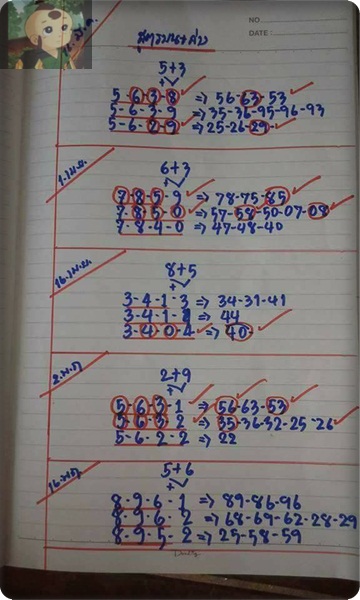 NO.
DATE :
สูตรบน+ล่าง
5+3
+
5-6-3-8 => 56-63-53
5-6-3-9 => 35-36-95-96-93
5-6-2-9 => 25-26-29
1.เม.ย.
6+3
+
7-8-5-9 => 78-75-85
7-8-5-0 => 57-58-50-07-08
7-8-4-0 => 47-48-40
16.เม.ย.
8+5
+
3-4-1-3 => 34-31-41
3-4-1-4 => 44
3-4-0-4 => 40
2.พ.ค
2+9
+
5-6-3-1 => 56-63-53
5-6-3-2 => 35-36-32-25-26
5-6-2-2 => 22
16.พ.ค
5+6
+
8-9-6-1 => 89-86-96
8-9-6-2 => 68-69-62-28-29
8-9-5-2 => 25-58-59